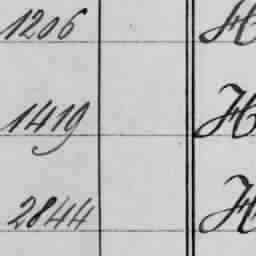 1206 H
1419 H
2844 H